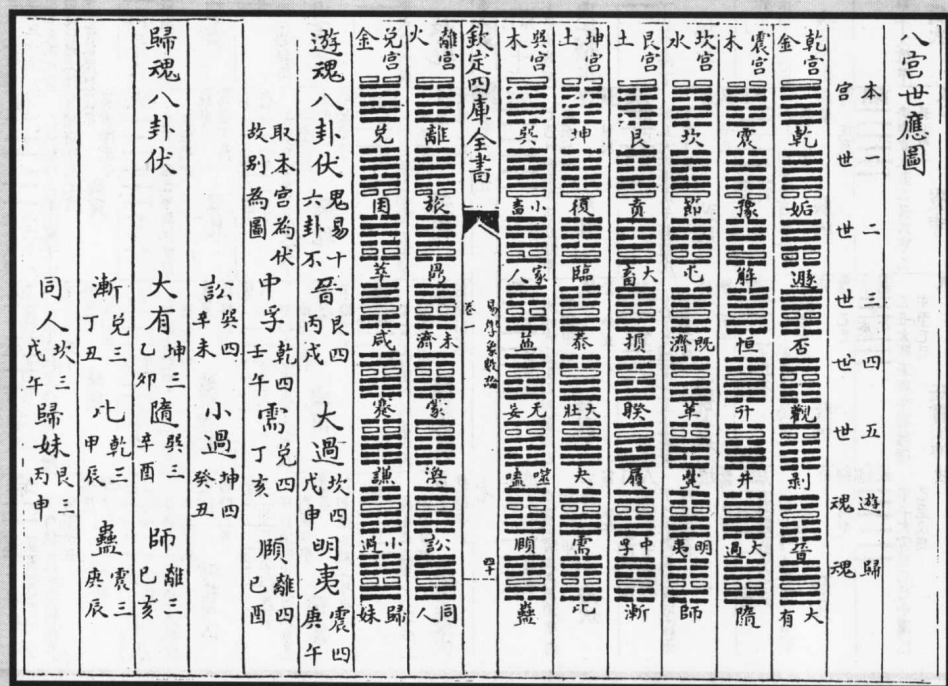 八宮世應圖
本宮 一世 二世 三世 四世 五世 遊魂 歸魂
乾宮金 乾 姤 遯 否 觀 剥 晉 大有
震宮木 震 豫 解 恒 升 井 大過 隨
坎宮水 坎 節 屯 既濟 革 豐 明夷 師
艮宮土 艮 賁 大畜 損 睽 履 中孚 漸
坤宮土 坤 復 臨 泰 大壯 夬 需 比
巽宮木 巽 小畜 家人 益 无妄 噬嗑 頤 蠱
欽定四庫全書
卷一
易學象數論
四十
離宮火 離 旅 鼎 未濟 蒙 渙 訟 同人
兌宮金 兌 困 萃 咸 蹇 謙 小過 歸妹
遊魂八卦伏 鬼易十六卦不 晉 艮四丙戌 大過 坎四戊申 明夷 震四庚午
取本宮為伏故别為圖 中孚 乾四壬午 需 兌四丁亥 頤 離四己酉
訟 巽四辛未 小過 坤四癸丑
歸魂八卦伏 大有 坤三乙卯 隨 巽三辛酉 師 離三己亥
漸 兌三丁丑 比 乾三甲辰 蠱 震三庚辰
同人 坎三戊午 歸妹 艮三丙申